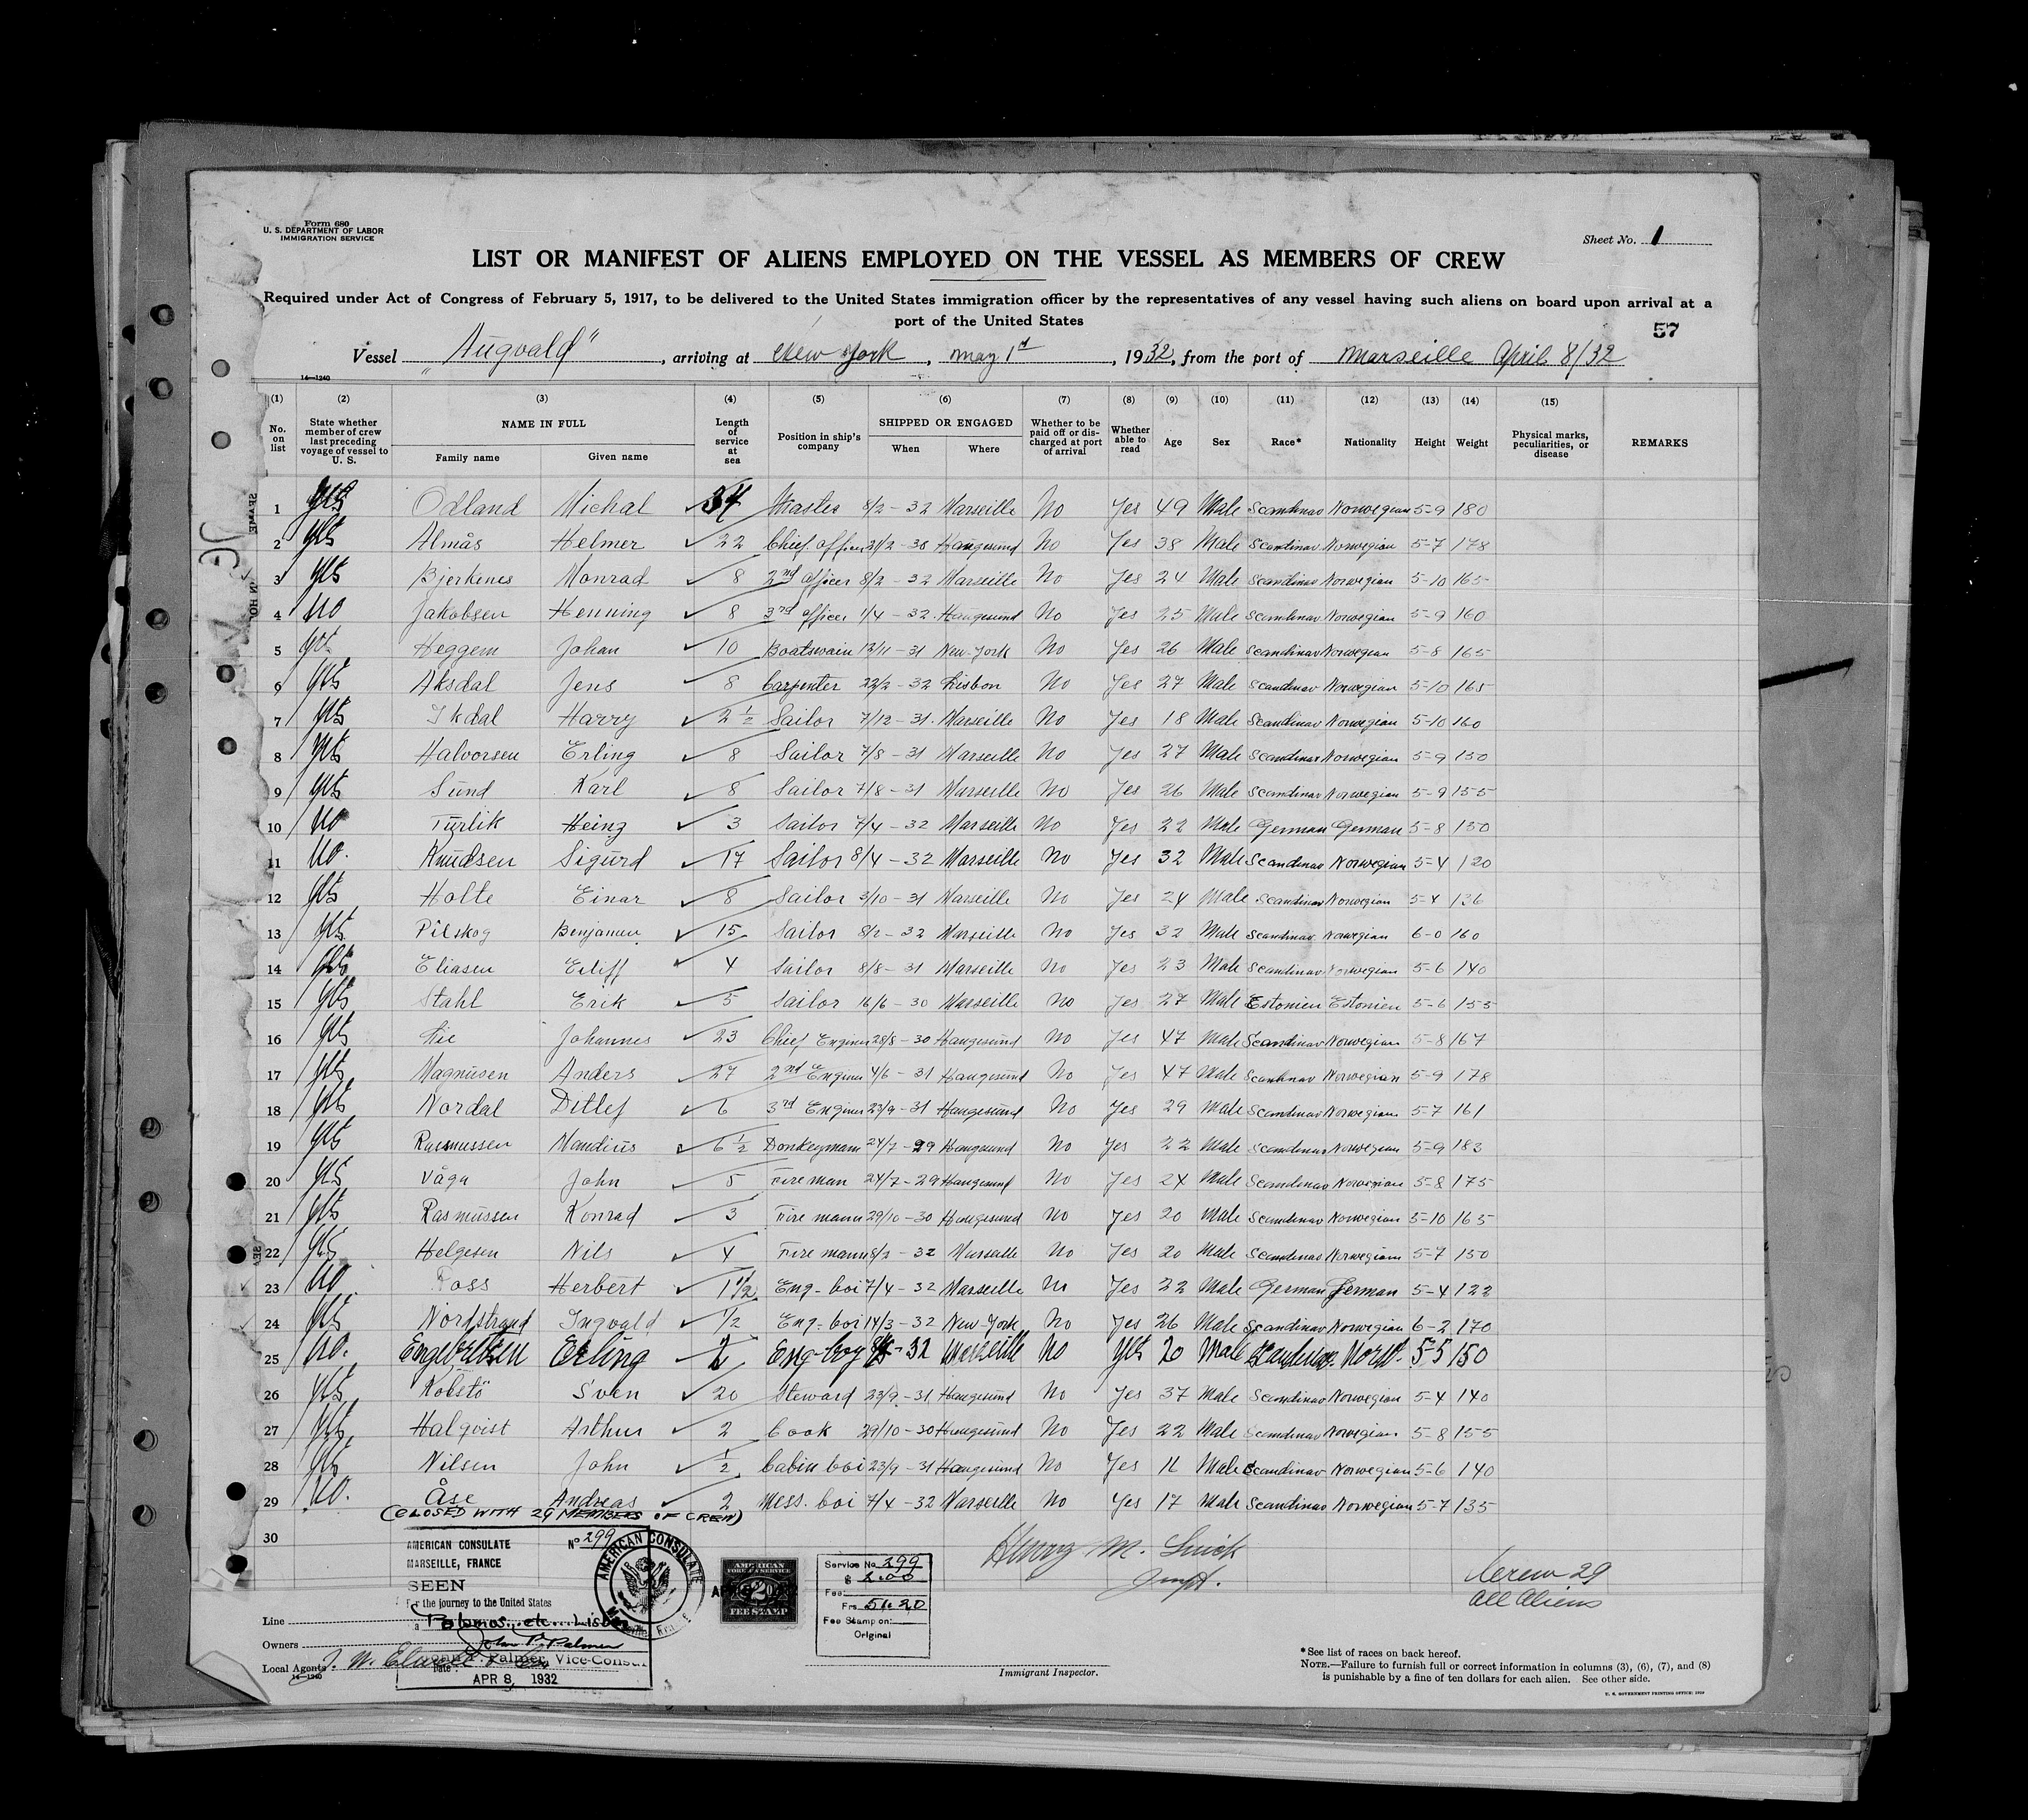 Form 680
U. S. DEPARTMENT OF LABOR
IMMIGRATION SERVICE
Sheet No. 1
LIST OR MANIFEST OF ALIENS EMPLOYED ON THE VESSEL AS MEMBERS OF CREW
Required under Act of Congress of February 5, 1917, to be delivered to the United States immigration officer by the representatives of any vessel having such aliens on board upon arrival at a
port of the United States
57
Vessel "Augvald", arriving at New York, May 1st, 1932, from the port of Marseille April 8/32
14—1240
(1) (2) (3) (4) (5) (6) (7) (8) (9) (10) (11) (12) (13) (14) (15)
No. on list State whether member of crew last preceding voyage of vessel to U. S. NAME IN FULL Family name Given name Length of service at sea Position in ship's company SHIPPED OR ENGAGED When Where Whether to be paid off or discharged at port of arrival Whether able to read Age Sex Race* Nationality Height Weight Physical marks, peculiarities, or disease REMARKS
1 Yes Odland Michal 34 Master 8/2 - 32 Marseille No Yes 49 Male Scandinav Norwegian 5-9 180
2 Yes Almås Helmer 22 Chief officer 21/2 - 30 Haugesund No Yes 38 Male Scandinav Norwegian 5-7 178
3 Yes Bjerkenes Monrad 8 2nd officer 8/2 - 32 Marseille No Yes 24 Male Scandinav Norwegian 5-10 165
4 No Jakobsen Henning 8 3rd officer 1/4 - 32 Haugesund No Yes 25 Male Scandinav Norwegian 5-9 160
5 Yes Heggem Johan 10 Boatswain 13/11 - 31 New-York No Yes 26 Male Scandinav Norwegian 5-8 165
6 Yes Aksdal Jens 8 Carpenter 22/2 - 32 Lisbon No Yes 27 Male Scandinav Norwegian 5-10 165
7 Yes Ikdal Harry 2 1/2 Sailor 7/12 - 31 Marseille No Yes 18 Male Scandinav Norwegian 5-10 160
8 Yes Halvorsen Erling 8 Sailor 7/8 - 31 Marseille No Yes 27 Male Scandinav Norwegian 5-9 150
9 Yes Sund Karl 8 Sailor 7/8 - 31 Marseille No Yes 26 Male Scandinav Norwegian 5-9 155
10 No Turlik Heinz 3 Sailor 7/4 - 32 Marseille No Yes 22 Male German German 5-8 150
11 No. Knudsen Sigurd 17 Sailor 8/4 - 32 Marseille No Yes 32 Male Scandinav Norwegian 5-4 120
12 Yes Holte Einar 8 Sailor 3/10 - 31 Marseille No Yes 24 Male Scandinav Norwegian 5-4 136
13 Yes Pilskog Benjamin 15 Sailor 8/2 - 32 Marseille No Yes 32 Male Scandinav Norwegian 6-0 160
14 Yes Eliasen Eiliff 4 Sailor 8/8 - 31 Marseille No Yes 23 Male Scandinav Norwegian 5-6 140
15 Yes Stahl Erik 5 Sailor 16/6 - 30 Marseille No Yes 27 Male Estonien Estonien 5-6 155
16 Yes Lie Johannes 23 Chief Enginer 28/8 - 30 Haugesund No Yes 47 Male Scandinav Norwegian 5-8 167
17 Yes Magnusen Anders 27 2nd Enginer 4/6 - 31 Haugesund No Yes 47 Male Scandinav Norwegian 5-9 178
18 Yes Nordal Ditlef 6 3rd Enginer 23/9 - 31 Haugesund No Yes 29 Male Scandinav Norwegian 5-7 161
19 Yes Rasmussen Mandius 6 1/2 Donkeymann 24/7 - 29 Haugesund No Yes 22 Male Scandinav Norwegian 5-9 183
20 Yes Våga John 5 Fire man 24/7 - 29 Haugesund No Yes 24 Male Scandinav Norwegian 5-8 175
21 Yes Rasmussen Konrad 3 Fire mann 29/10 - 30 Haugesund No Yes 20 Male Scandinav Norwegian 5-10 165
22 Yes Helgesen Nils 4 Fire mann 8/2 - 32 Marseille No Yes 20 Male Scandinav Norwegian 5-7 150
23 No Poss Herbert 1 1/2 Eng-boi 7/4 - 32 Marseille No Yes 22 Male German German 5-4 122
24 Yes Nordstrand Ingvald 1/2 Eng-boi 14/3 - 32 New-York No Yes 26 Male Scandinav Norwegian 6-2 170
25 No. Engebretsen Erling 2 Eng-boy 32 Marseille No Yes 20 Male Scandinav. Norw. 5-5 150
26 Yes Kobstö Sven 20 Steward 23/9 - 31 Haugesund No Yes 37 Male Scandinav Norwegian 5-4 140
27 Yes Halqvist Arthur 2 Cook 29/10 - 30 Haugesund No Yes 22 Male Scandinav Norwegian 5-8 155
28 Yes Nilsen John 1/2 Cabin boi 23/9 - 31 Haugesund No Yes 16 Male Scandinav Norwegian 5-6 140
29 No. Åse Andreas 2 Mess. boi 7/4 - 32 Marseille No Yes 17 Male Scandinav Norwegian 5-7 135
(CLOSED WITH 29 MEMBERS OF CREW)
30
AMERICAN CONSULATE No 299
MARSEILLE, FRANCE
SEEN
For the journey to the United States
Palamos, etc. Lisbon
John P. Palmer
Vice-Consul
Date: APR 8, 1932
AMERICAN CONSULATE
AMERICAN FOREIGN SERVICE
FEE STAMP
Service No. 299
Fee: $ 2.00
Frs 51.20
Fee Stamp on:
Original
Henry M.
Crew 29
All Aliens
Line
Owners
Local Agents
14—1240
Immigrant Inspector.
*See list of races on back hereof.
NOTE.—Failure to furnish full or correct information in columns (3), (6), (7), and (8)
is punishable by a fine of ten dollars for each alien. See other side.
U. S. GOVERNMENT PRINTING OFFICE: 1929